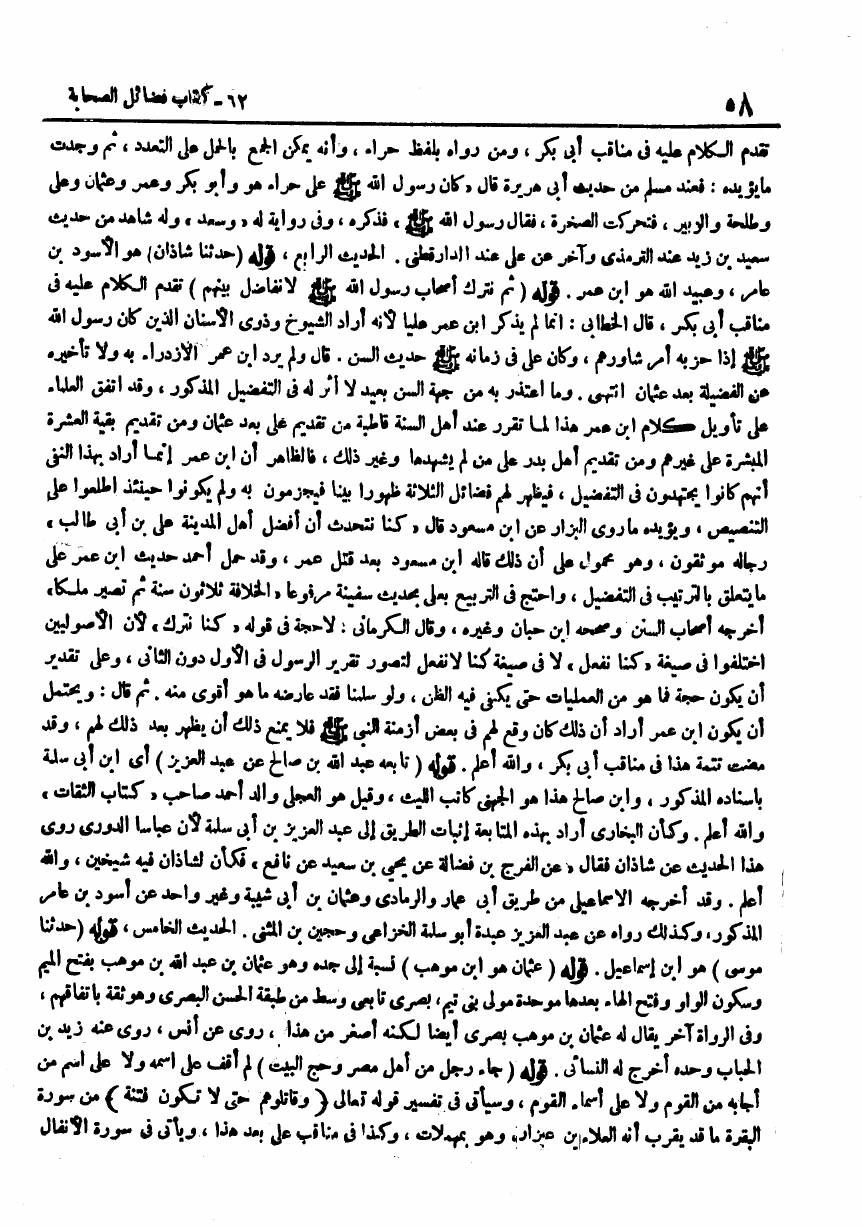 ٥٨
٦٢ - كتاب فضائل الصحابة
تقدم الكلام عليه فى مناقب أبى بكر ، ومن رواه بلفظ حراء ، وأنه يمكن الجمع بالحمل على التعدد ، ثم وجدت
مايؤيده : فعند مسلم من حديث أبى هريرة قال « كان رسول الله ﷺ على حراء هو وأبو بكر وعمر وعثمان وعلى
وطلحة والزبير ، فتحركت الصخرة ، فقال رسول الله ﷺ » فذكره ، وفى رواية له « وسعد » وله شاهد من حديث
سعيد بن زيد عند الترمذى وآخر عن على عند الدارقطنى . الحديث الرابع ، قوله ( حدثنا شاذان ) هو الأسود بن
عامر ، وعبيد الله هو ابن عمر . قوله ( ثم نترك أصحاب رسول الله ﷺ لا نفاضل بينهم ) تقدم الكلام عليه فى
مناقب أبى بكر ، قال الخطابى : انما لم يذكر ابن عمر عليا لأنه أراد الشيوخ وذوى الأسنان الذين كان رسول الله
ﷺ إذا حزبه أمر شاورهم ، وكان على فى زمانه ﷺ حديث السن . قال ولم يرد ابن عمر الازدراء به ولا تأخيره
عن الفضيلة بعد عثمان انتهى . وما اعتذر به من جهة السن بعيد لا أثر له فى التفضيل المذكور ، وقد اتفق العلماء
على تأويل كلام ابن عمر هذا لما تقرر عند أهل السنة قاطبة من تقديم على بعد عثمان ومن تقديم بقية العشرة
المبشرة على غيرهم ومن تقديم أهل بدر على من لم يشهدها وغير ذلك ، فالظاهر أن ابن عمر إنما أراد بهذا النفى
أنهم كانوا يجتهدون فى التفضيل ، فيظهر لهم فضائل الثلاثة ظهورا بينا فيجزمون به ولم يكونوا حينئذ اطلعوا على
التنصيص ، ويؤيده ما روى البزار عن ابن مسعود قال « كنا نتحدث أن أفضل أهل المدينة على بن أبى طالب »
رجاله موثقون ، وهو محمول على أن ذلك قاله ابن مسعود بعد قتل عمر ، وقد حمل أحمد حديث ابن عمر على
ما يتعلق بالترتيب فى التفضيل ، واحتج فى التربيع بعلى بحديث سفينة مرفوعا « الخلافة ثلاثون سنة ثم تصير ملكا »
أخرجه أصحاب السنن وصححه ابن حبان وغيره ، وقال الكرمانى : لا حجة فى قوله « كنا نترك » لأن الأصوليين
اختلفوا فى صيغة « كنا نفعل » لا فى صيغة كنا لا نفعل لتصور تقرير الرسول فى الأول دون الثانى ، وعلى تقدير
أن يكون حجة فما هو من العمليات حتى يكفى فيه الظن ، ولو سلمنا فقد عارضه ما هو أقوى منه . ثم قال : ويحتمل
أن يكون ابن عمر أراد أن ذلك كان وقع لهم فى بعض أزمنة النبى ﷺ فلا يمنع ذلك أن يظهر بعد ذلك لهم ، وقد
مضت تتمة هذا فى مناقب أبى بكر ، والله أعلم . قوله ( تابعه عبد الله بن صالح عن عبد العزيز ) أى ابن أبى سلمة
باسناده المذكور ، وابن صالح هذا هو الجهنى كاتب الليث ، وقيل هو العجلى والد أحمد صاحب « كتاب الثقات »
والله أعلم . وكأن البخارى أراد بهذه المتابعة إثبات الطريق إلى عبد العزيز بن أبى سلمة لأن عباسا الدورى روى
هذا الحديث عن شاذان فقال « عن الفرج بن فضالة عن يحيى بن سعيد عن نافع » فكأن لشاذان فيه شيخين ، والله
أعلم . وقد أخرجه الاسماعيلى من طريق أبى عمار والرمادى وعثمان بن أبى شيبة وغير واحد عن أسود بن عامر
المذكور ، وكذلك رواه عن عبد العزيز عبدة أبو سلمة الخزاعى وحجين بن المثنى . الحديث الخامس ، قوله ( حدثنا
موسى ) هو ابن إسماعيل . قوله ( عثمان هو ابن موهب ) نسبة إلى جده وهو عثمان بن عبد الله بن موهب بفتح الميم
وسكون الواو وفتح الهاء بعدها موحدة مولى بنى تيم ، بصرى تابعى وسط من طبقة الحسن البصرى وهو ثقة باتفاقهم ،
وفى الرواة آخر يقال له عثمان بن موهب بصرى أيضا لكنه أصغر من هذا ، روى عن أنس ، روى عنه زيد بن
الحباب وحده أخرج له النسائى . قوله ( جاء رجل من أهل مصر وحج البيت ) لم أقف على اسمه ولا على اسم من
أجابه من القوم ولا على أسماء القوم ، وسيأتى فى تفسير قوله تعالى ﴿ وقاتلوهم حتى لا تكون فتنة ﴾ من سورة
البقرة ما قد يقرب أنه العلاء بن عيزار ، وهو بمهملات ، وكذا فى مناقب على بعد هذا ، ويأتى فى سورة الأنفال